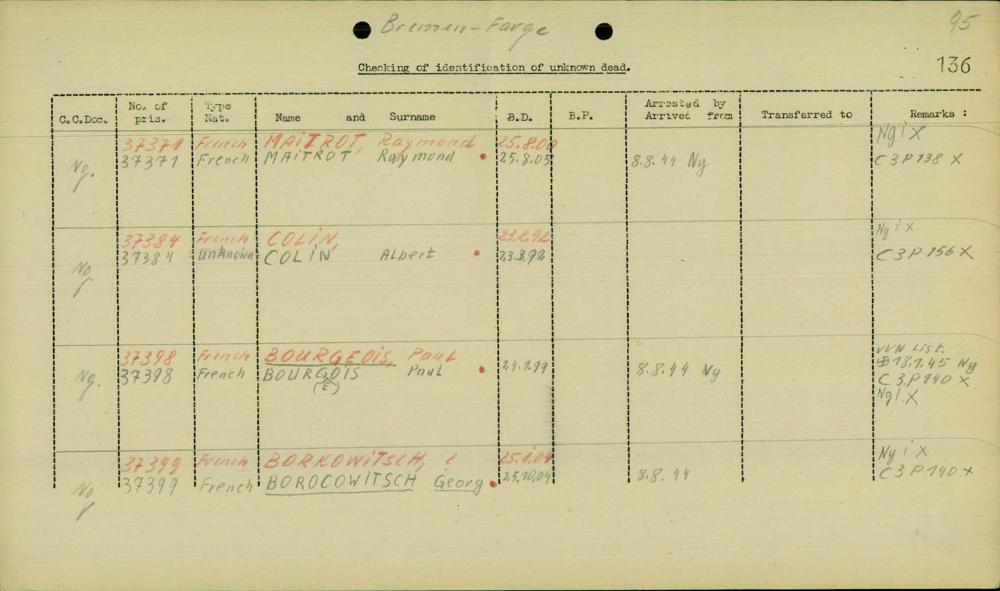 Bremen-Farge
95
Checking of identification of unknown dead.
136
C.C.Doc. No. of pris. Type Nat. Name and Surname B.D. B.P. Arrested by Arrived from Transferred to Remarks :
37371 French MAITROT, Raymond 25.8.0 Ngi X
Ng. 37371 French MAITROT Raymond 25.8.03 8.8.44 Ng C3P138 X
37384 French COLIN, 23.2.92 Ngi X
Ng 37384 unknown COLIN Albert 23.3.92 C3P156 X
37398 French BOURGEOIS, Paul VVN List.
18.1.45 Ng
Ng. 37398 French BOURGOIS Paul 24.1.99 8.8.44 Ng C3,P140 X
(E) Ngi.X
37399 French BORKOWITSCH, 25.1.04 Ngi X
Ng 37399 French BOROCOWITSCH Georg 25.10.04 8.8.44 C3P140.X